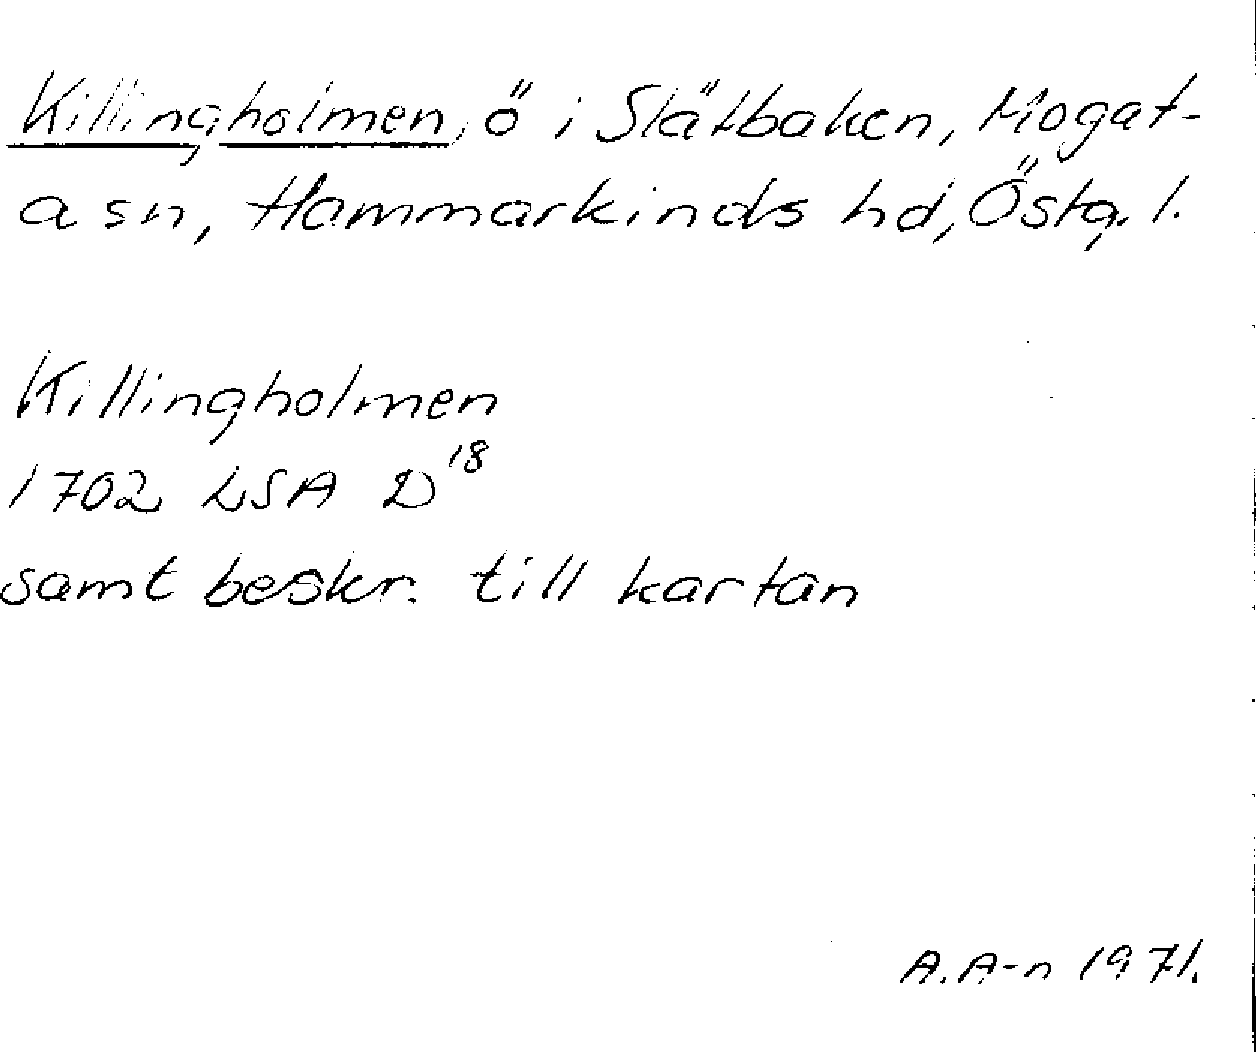 Killingholmen, ö i Slätbaken, Mogat-
a sn, Hammarkinds hd, Östg. l.
Killingholmen
1702 LSA D18
samt beskr. till kartan
A. A-n 1971.